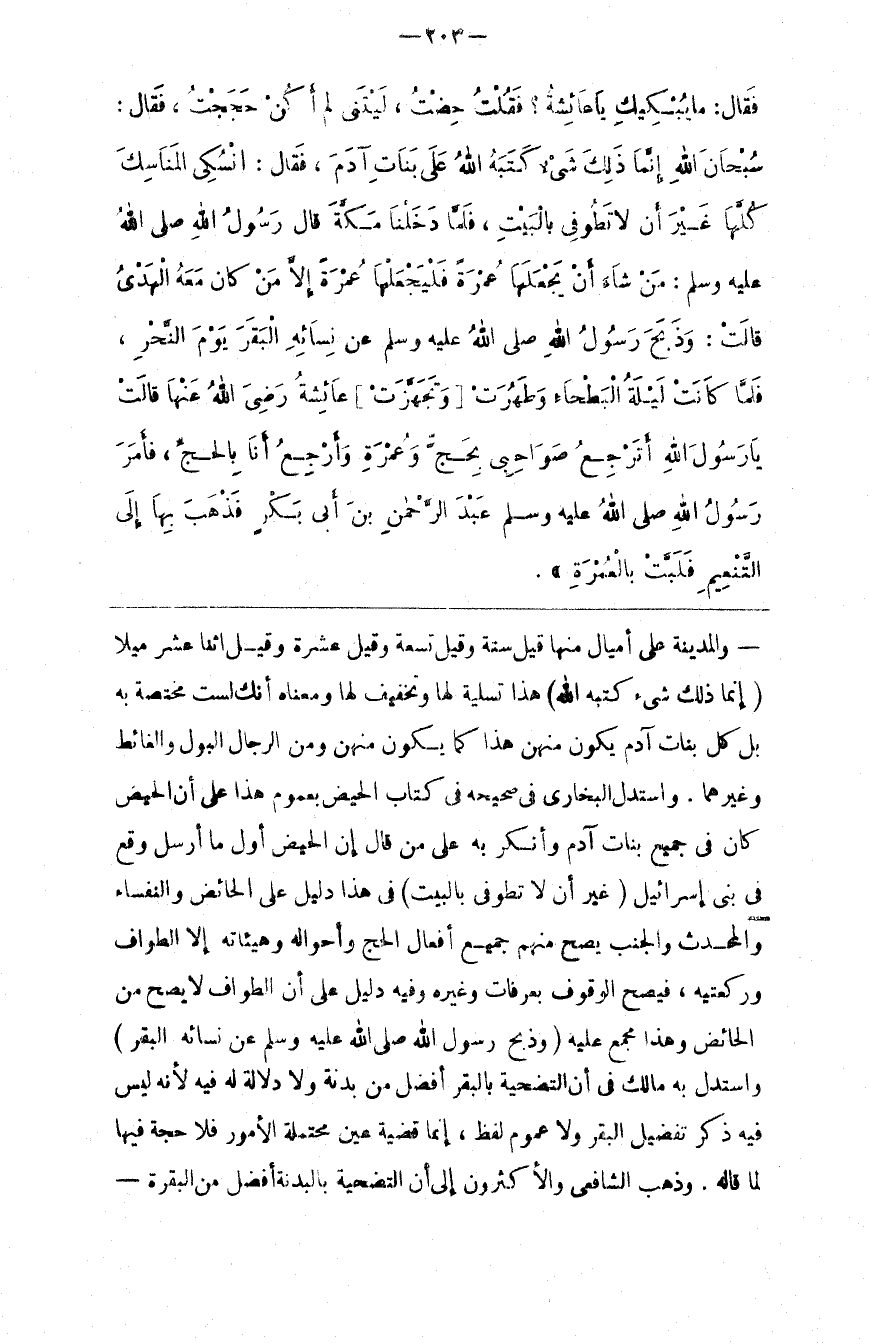 — ٢٠٣ —
فَقَال: مايُبْكِيكِ يَاعَائِشَةُ ؟ فَقُلْتُ حِضْتُ ، لَيْتَنِى لم أَ كُنْ حَجَجْتُ ، فَقَال :
سُبْحَانَ اللهِ إِنَّمَا ذَلِكَ شَىْءٌ كَتَبَهُ اللهُ عَلَى بَنَاتِ آدَمَ ، فَقَال : انْسُكِى المَنَاسِكَ
كُلَّهَا غَيْرَ أَن لاتَطُوفِى بِالْبَيْتِ ، فَلَمَّا دَخَلْنَا مَكَّةَ قال رَسُولُ اللهِ صلى اللهُ
عليه وسلم : مَنْ شَاءَ أَنْ يَجْعَلَهَا عُمْرَةً فَلْيَجْعَلْهَا عُمْرَةً إِلاَّ مَنْ كان مَعَهُ الْهَدْىُ
قالَتْ : وَذَبَحَ رَسُولُ اللهِ صلى اللهُ عليه وسلم عن نِسَائِهِ الْبَقَرَ يَوْمَ النَّحْرِ ،
فَلَمَّا كَانَتْ لَيْلَةُ الْبَطْحَاءِ وَطَهُرَتْ [ وَتَجَهَّزَتْ ] عَائِشَةُ رَضِىَ اللهُ عَنْهَا قالَتْ
يَارَسُولَ اللهِ أَتَرْجِعُ صَوَاحِبِى بِحَجٍّ وَعُمْرَةٍ وَأَرْجِعُ أَنَا بِالحَجِّ ، فأَمَرَ
رَسُولُ اللهِ صلى اللهُ عليه وسلم عَبْدَ الرَّحْمٰنِ بنَ أبى بَكْرٍ فَذَهَبَ بِهَا إِلَى
التَّنْعِيمِ فَلَبَّتْ بِالْعُمْرَةِ » .
— والمدينة على أميال منها قيل ستة وقيل تسعة وقيل عشرة وقيل اثنا عشر ميلا
( إنما ذلك شىء كتبه الله) هذا تسلية لها وتخفيف لها ومعناه أنك لست مختصة به
بل كل بنات آدم يكون منهن هذا كما يكون منهن ومن الرجال البول والغائط
وغيرهما . واستدل البخارى فى صحيحه فى كتاب الحيض بعموم هذا على أن الحيض
كان فى جميع بنات آدم وأنكر به على من قال إن الحيض أول ما أرسل وقع
فى بنى إسرائيل ( غير أن لا تطوفى بالبيت) فى هذا دليل على الحائض والنفساء
والمحدث والجنب يصح منهم جميع أفعال الحج وأحواله وهيئاته إلا الطواف
وركعتيه ، فيصح الوقوف بعرفات وغيره وفيه دليل على أن الطواف لا يصح من
الحائض وهذا مجمع عليه ( وذبح رسول الله صلى الله عليه وسلم عن نسائه البقر )
واستدل به مالك فى أن التضحية بالبقر أفضل من بدنة ولا دلالة له فيه لأنه ليس
فيه ذكر تفضيل البقر ولا عموم لفظ ، إنما قضية عين محتملة الأمور فلا حجة فيها
لما قاله . وذهب الشافعى والأكثرون إلى أن التضحية بالبدنة أفضل من البقرة —